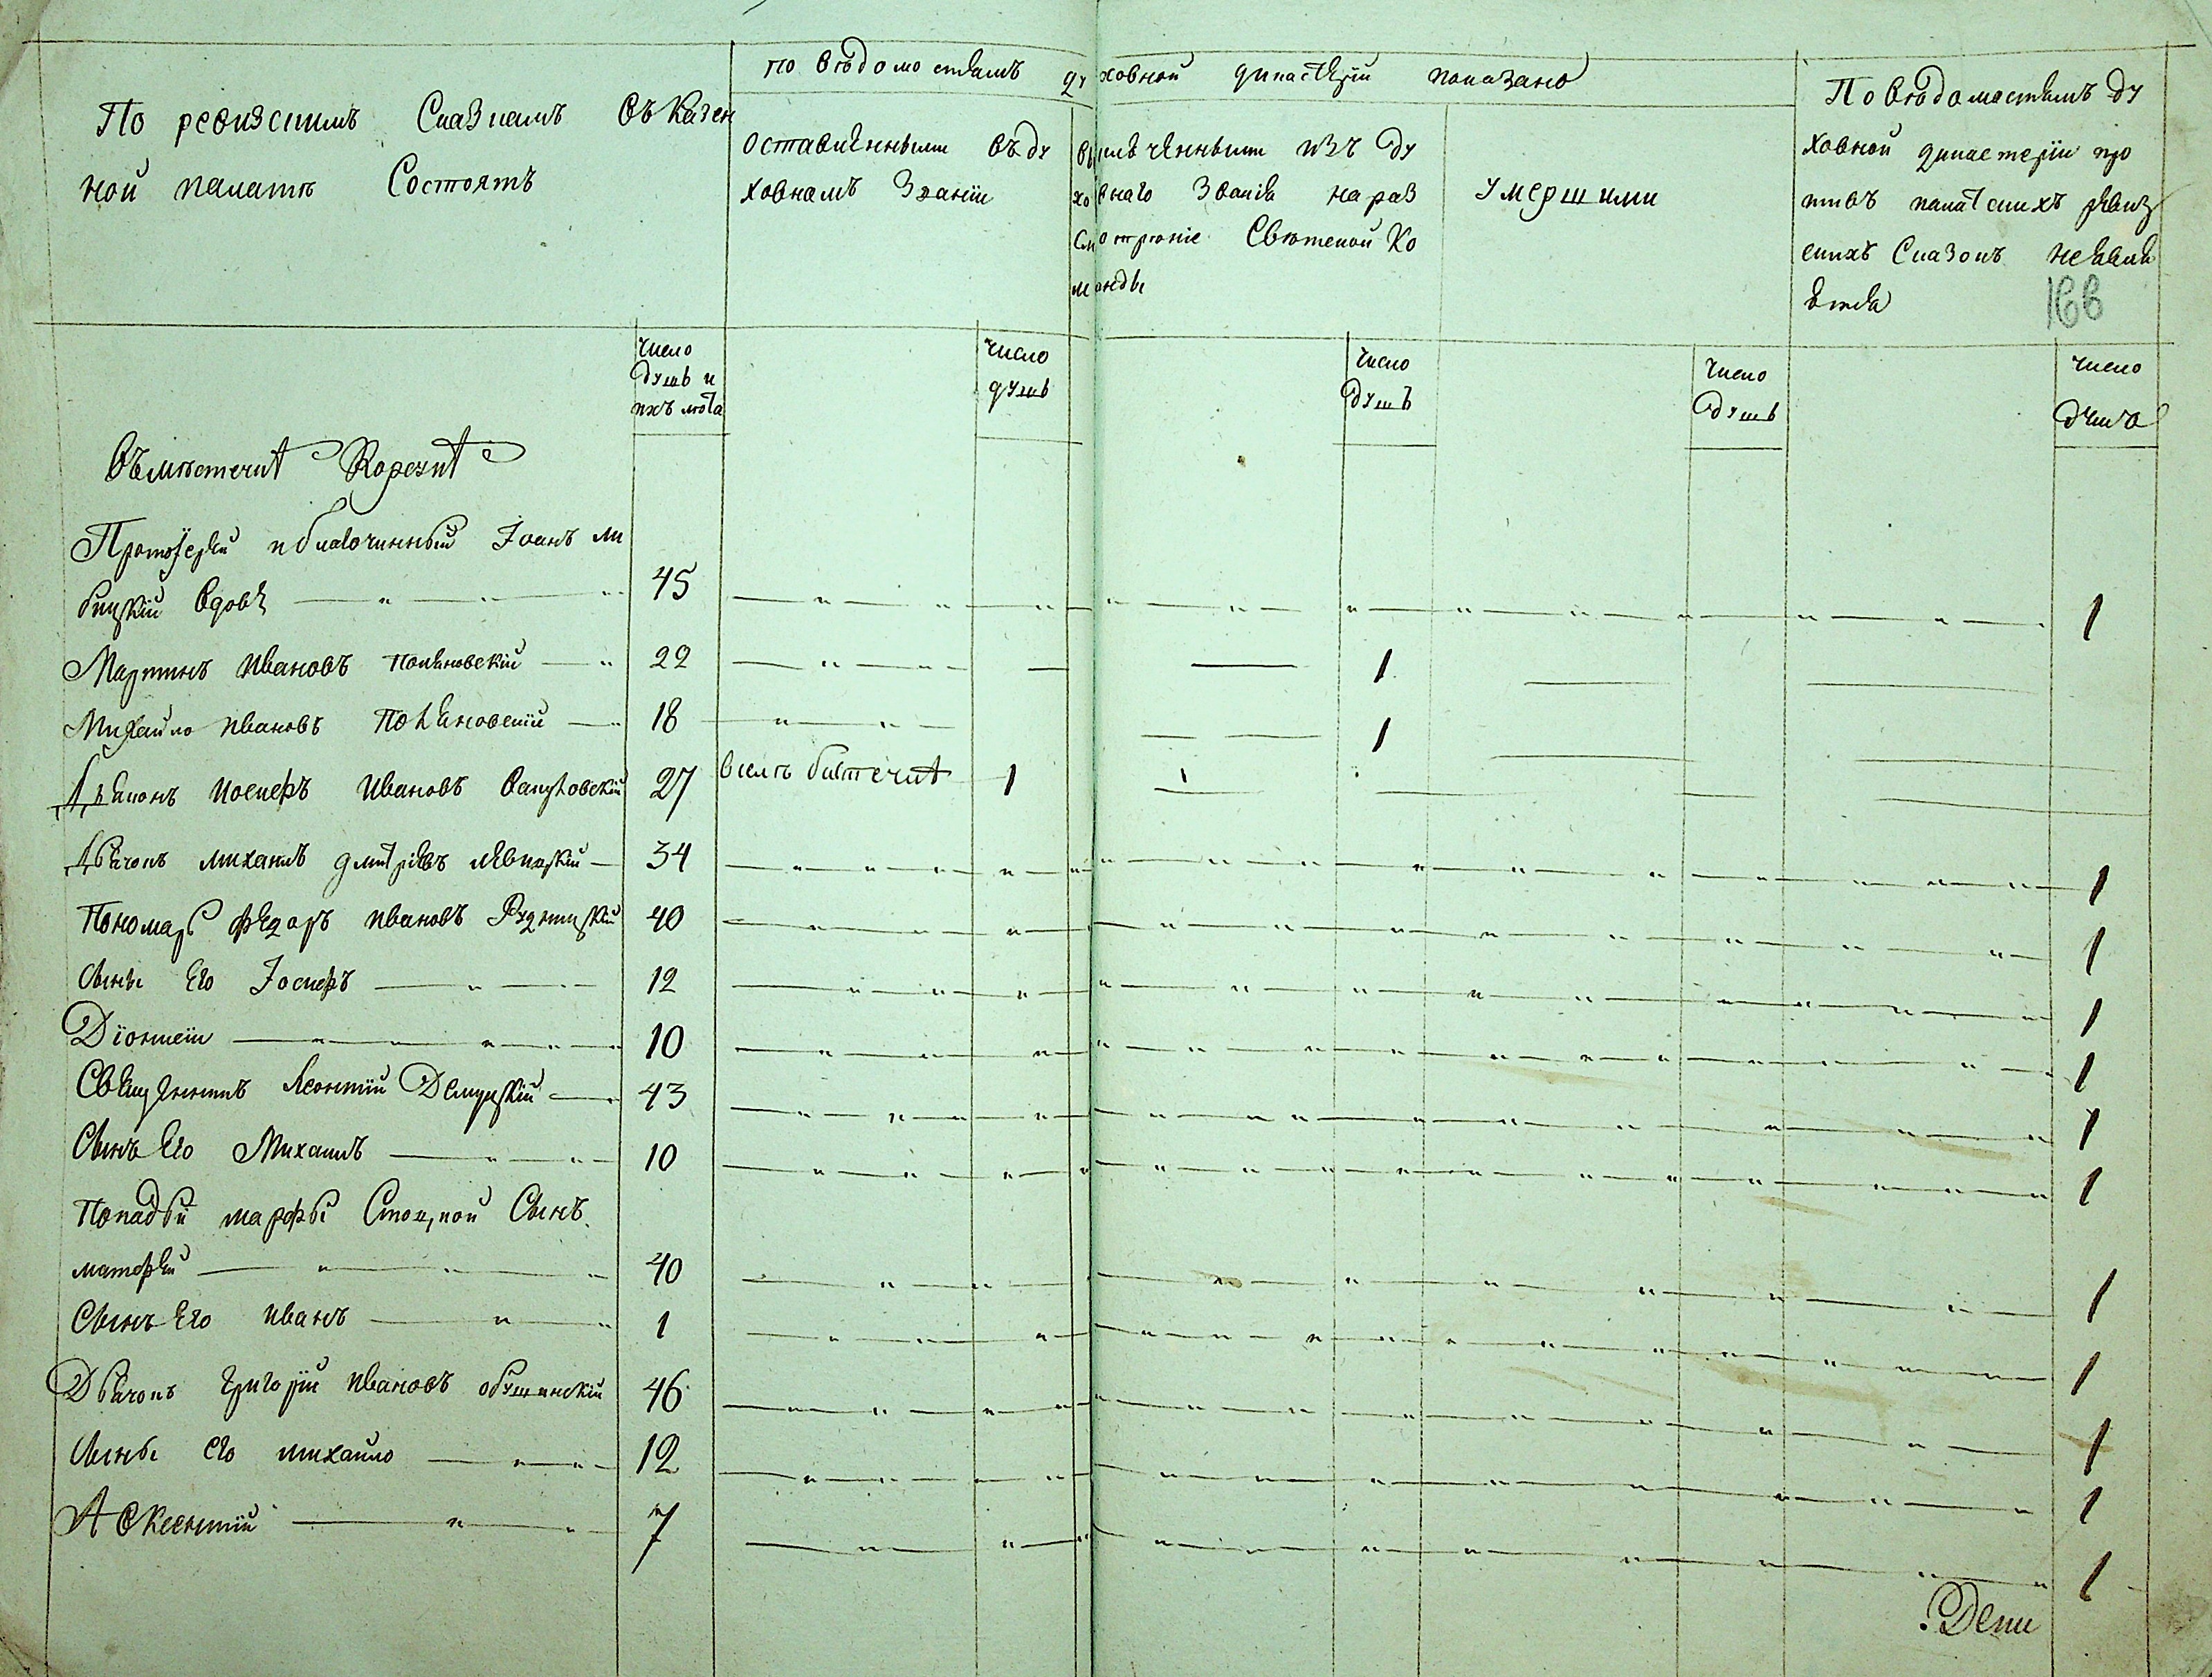 По ревизскимъ Сказкамъ въ Казен
ной палатѣ Состоятъ
по вѣдомостямъ духовной дикастеріи показано
оставленными въ ду
ховномъ Званіи
выключенными изъ ду
ховнаго Званія на раз
смотреніе Свѣтской Ко
манды
умершими
По вѣдомостямъ ду
ховной дикастеріи про
тивъ палатскихъ ревиз
скихъ Сказокъ неявля
ется
число
душъ и
ихъ лѣта
число
душъ
число
душъ
число
душъ
число
душъ
Въ мѣстечкѣ Корсунѣ
Протоіерей и благочинный Іоанъ
вдовъ 45 1
Мартинъ Ивановъ 22 1
Михайло Ивановъ 18 1
Дьяконъ Иосифъ Ивановъ 27 1
Дьячокъ Михаилъ Дмитріевъ Левицкій 34 1
Пономарь Федоръ Ивановъ Рудницкій 40 1
Сыны Его Іосифъ 12 1
Діонисій 10 1
Священникъ Леонтій 43 1
Сынъ Его Михаилъ 10 1
Попадьи Марфы Сынъ
Матфей 40 1
Сынъ Его Иванъ 1 1
Дьячокъ Григорій Ивановъ 46 1
Сыны Его Михайло 12 1
Авксентій 7 1